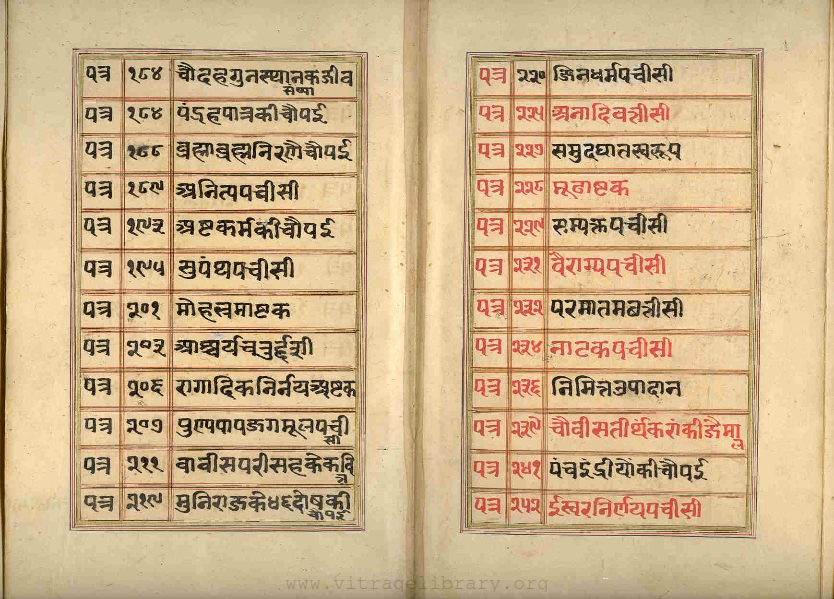 पत्र १८४ चौदहगुनस्थानकजीव
संष्या
पत्र १८४ पंद्रहपात्रकीचौपई
पत्र १८८ ब्रह्माब्रह्मनिरणैचौपई
पत्र १८९ अनित्यपचीसी
पत्र १९२ अष्टकर्मकीचौपई
पत्र १९५ सुपंथपचीसी
पत्र २०१ मोहभ्रमाष्टक
पत्र २०२ आश्चर्यचतुर्द्दशी
पत्र २०६ रागादिकनिर्नयअष्टक
पत्र २०७ पुण्यपापजगमूलपची
सी
पत्र २११ बावीसपरीसहकेकवि
त्त
पत्र २१९ मुनिराजके४६दोषकी
चौपई
पत्र २२० जिनधर्मपचीसी
पत्र २२५ अनादिबत्तीसी
पत्र २२७ समुदघातस्वरूप
पत्र २२८ मूढाष्टक
पत्र २२९ सम्यक्तपचीसी
पत्र २३१ वैराग्यपचीसी
पत्र २३२ परमातमछत्तीसी
पत्र २३४ नाटकपचीसी
पत्र २३६ निमित्तउपादान
पत्र २३९ चौवीसतीर्थकरांकीजैमा
ल
पत्र २४१ पंचइंद्रीयोंकीचौपई
पत्र २५२ ईस्वरनिर्णयपचीसी
www.vitragelibrary.org